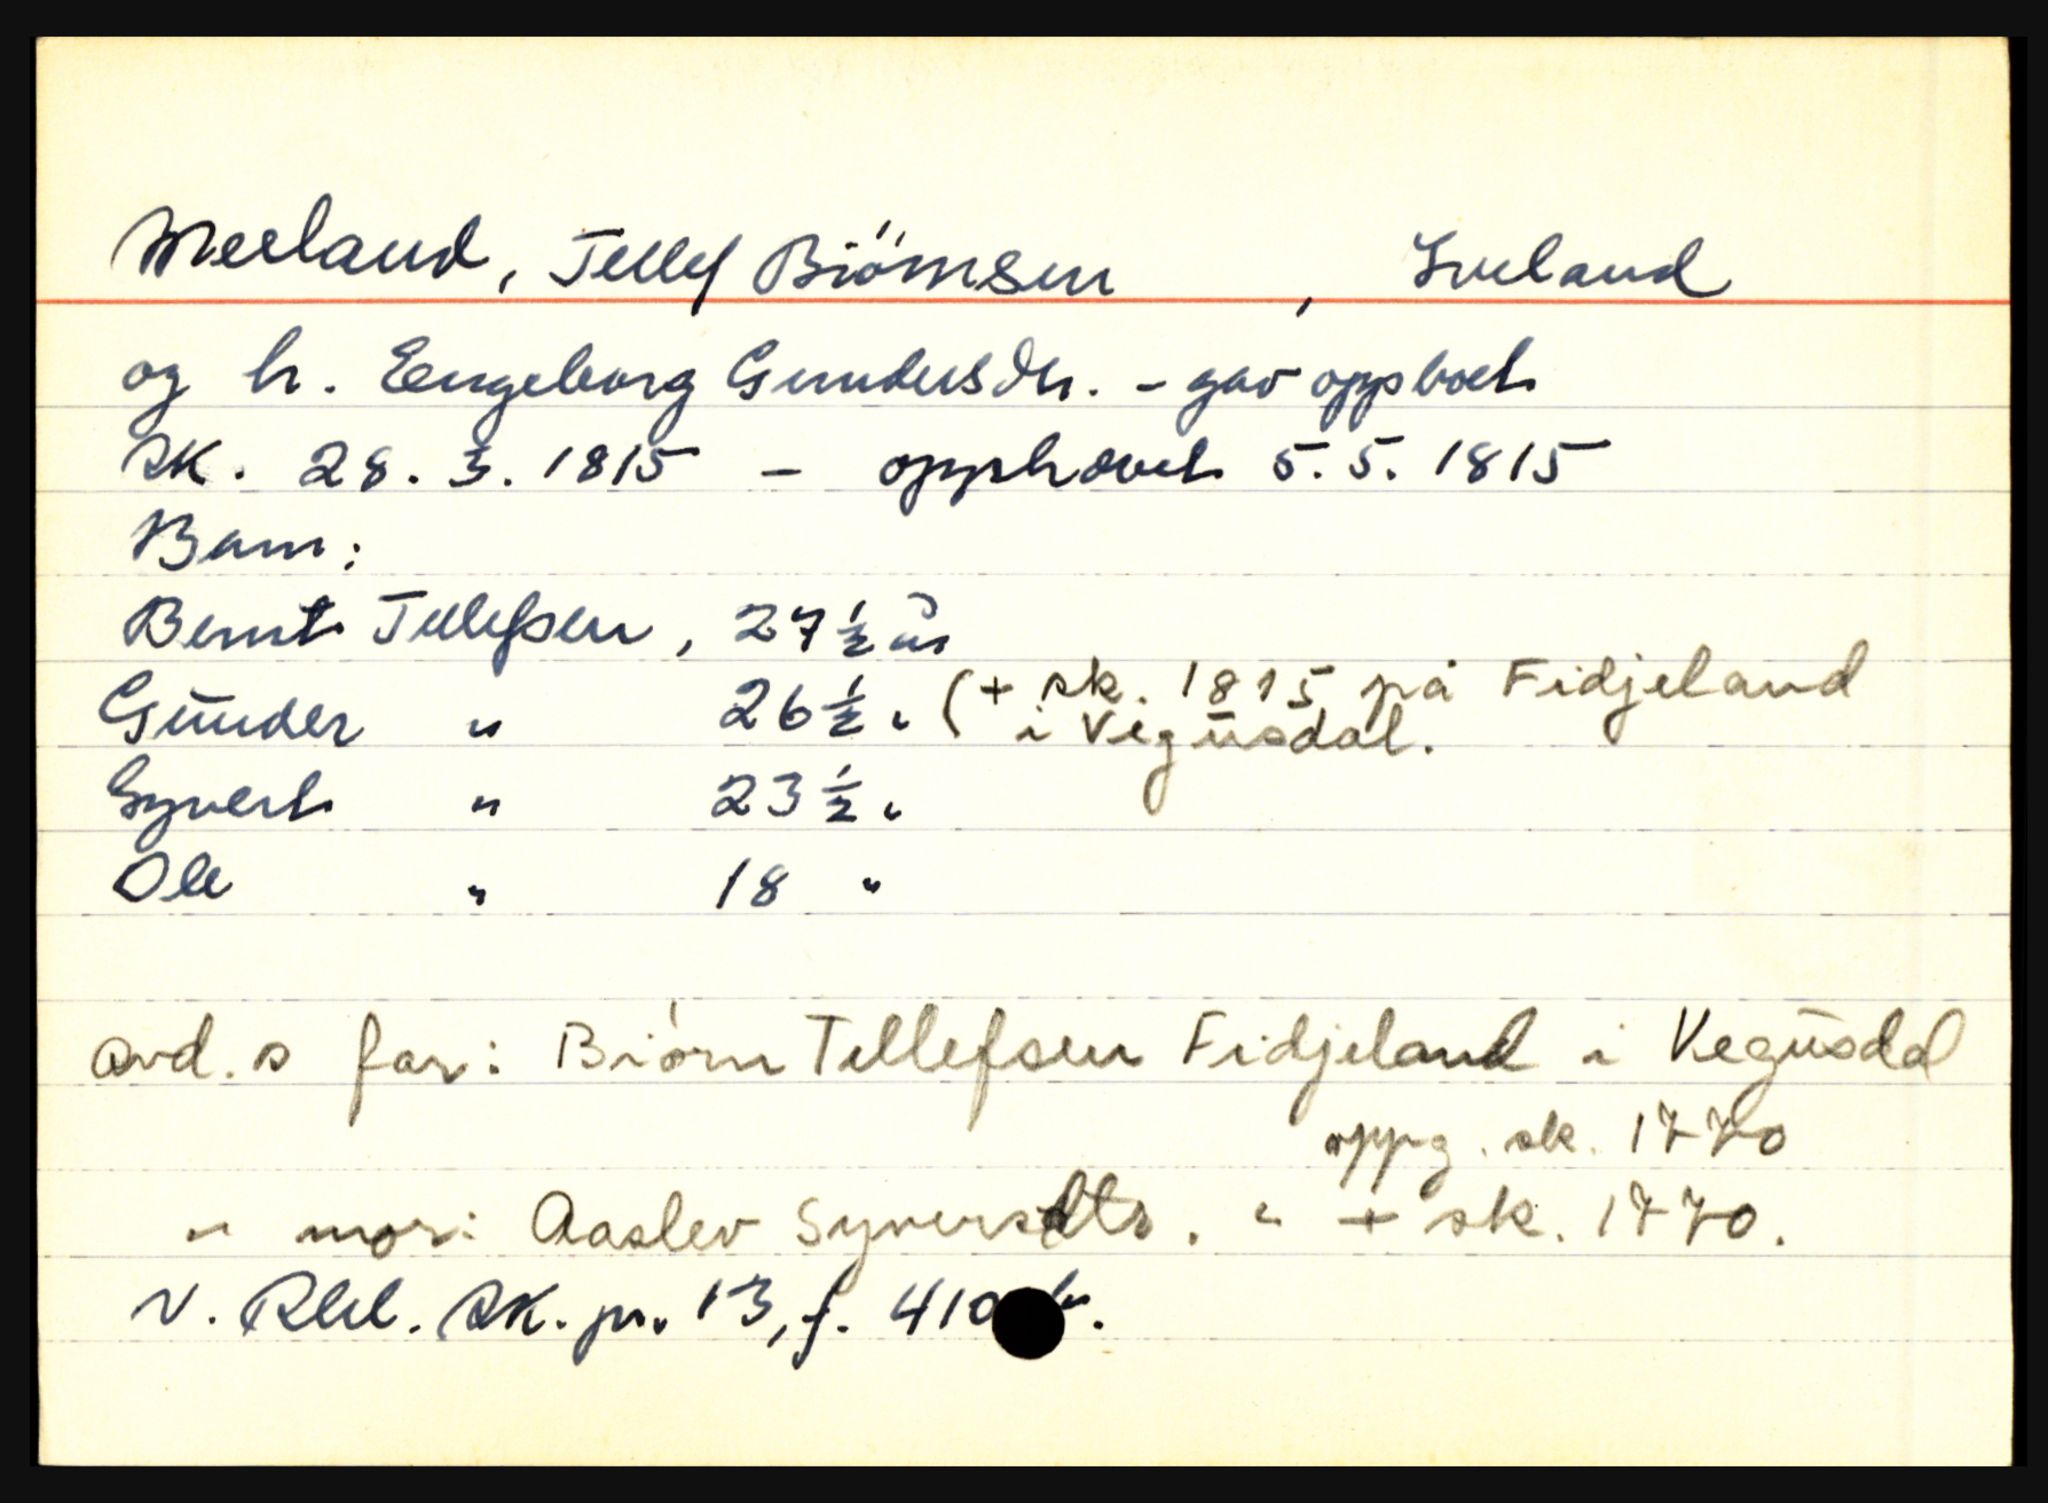 Meeland, Tellef Biörnsen, Iveland
og h. Engeborg Gundersdtr. - gav opp boet
SK. 28. 3. 1815 - opphævet 5. 5. 1815
Barn:
Bernt Tellefsen, 27 ½ år
Gunder " 26 ½ " (+ sk. 1815 på Fidjeland
i Vegusdal.
Syvert " 23 ½ "
Ole " 18 "
avd. s far: Biørn Tellefsen Fidjeland i Vegusdal
oppg. sk. 1770
" mor: Aaslev Syversdtr. " + sk. 1770.
N. Rbl. SK. pr. 13, f. 410